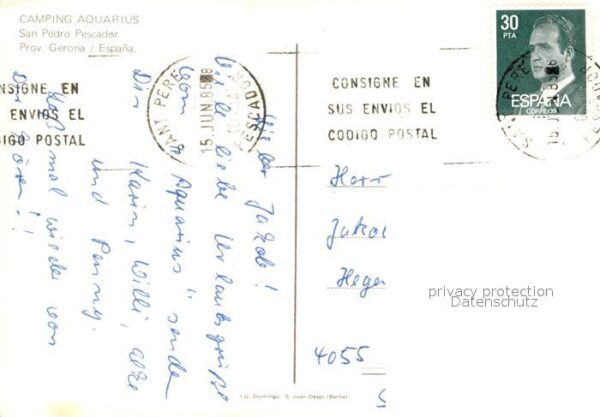 CAMPING AQUARIUS
San Pedro Pescador
Prov. Gerona / España.
30
PTA
ESPAÑA
CORREOS
NSIGNE EN
ENVIOS EL
DIGO POSTAL
SANT PERE PESCADOR
15 JUN 85
CONSIGNE EN
SUS ENVIOS EL
CODIGO POSTAL
SANT PERE PESCADOR
15 JUN 85
Lieber Jakob!
Viele liebe Urlaubsgrüße
vom "Aquarius" sende
Dir Karin, Willi,
und Penny.
Laß mal wieder von
Dir hören!!
Herr
Jakob
Heger
4055
privacy protection
Datenschutz
I.G. Domingo - S. Juan Despi (Barna)